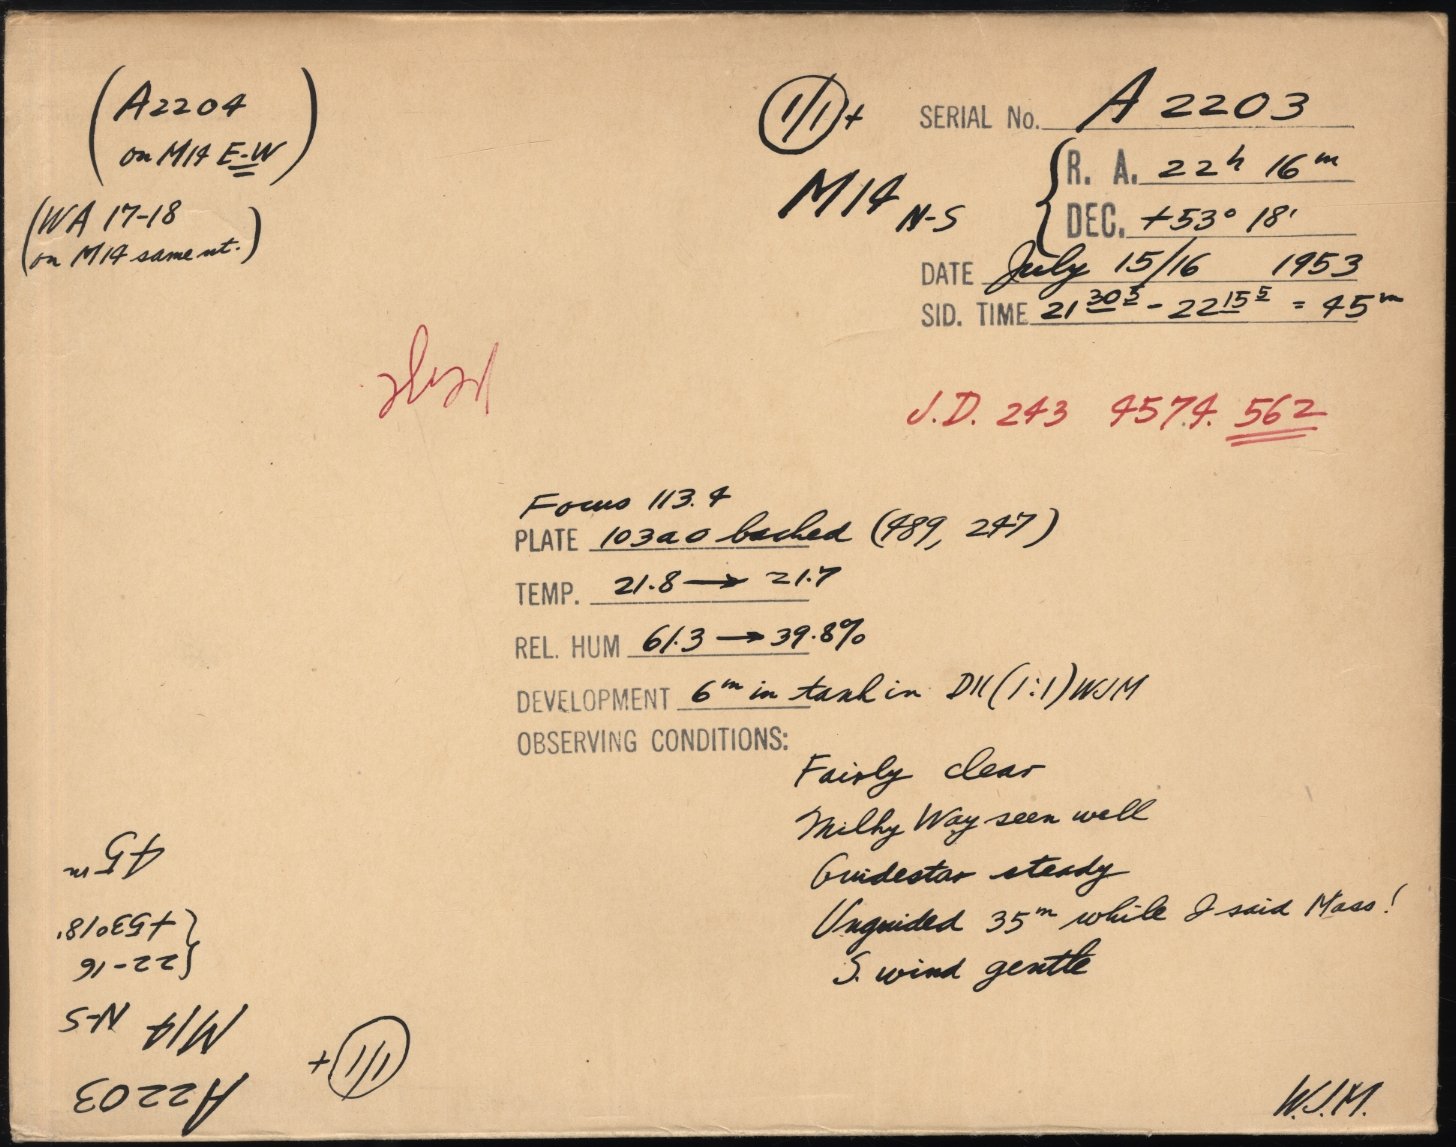 (A2204
on M14 E-W)
(WA 17-18
on M14 same nt.)
1/1 +
M14 N-S
SERIAL No. A2203
R. A. 22h 16m
DEC. +53° 18'
DATE July 15/16 1953
SID. TIME 21 30 5 - 22 15 5 = 45m
J.D. 243 4574.562
Focus 113.4
PLATE 103a0 backed (489, 247)
TEMP. 21.8 → 21.7
REL. HUM 61.3 → 39.8%
DEVELOPMENT 6m in tank in D11 (1:1) WJM
OBSERVING CONDITIONS:
Fairly clear
Milky Way seen well
Guidestar steady
Unguided 35m while I said Mass!
S. wind gentle
W.J.M.
A2203
1/1 +
M14 N-S
22-16
+53°18'
45m